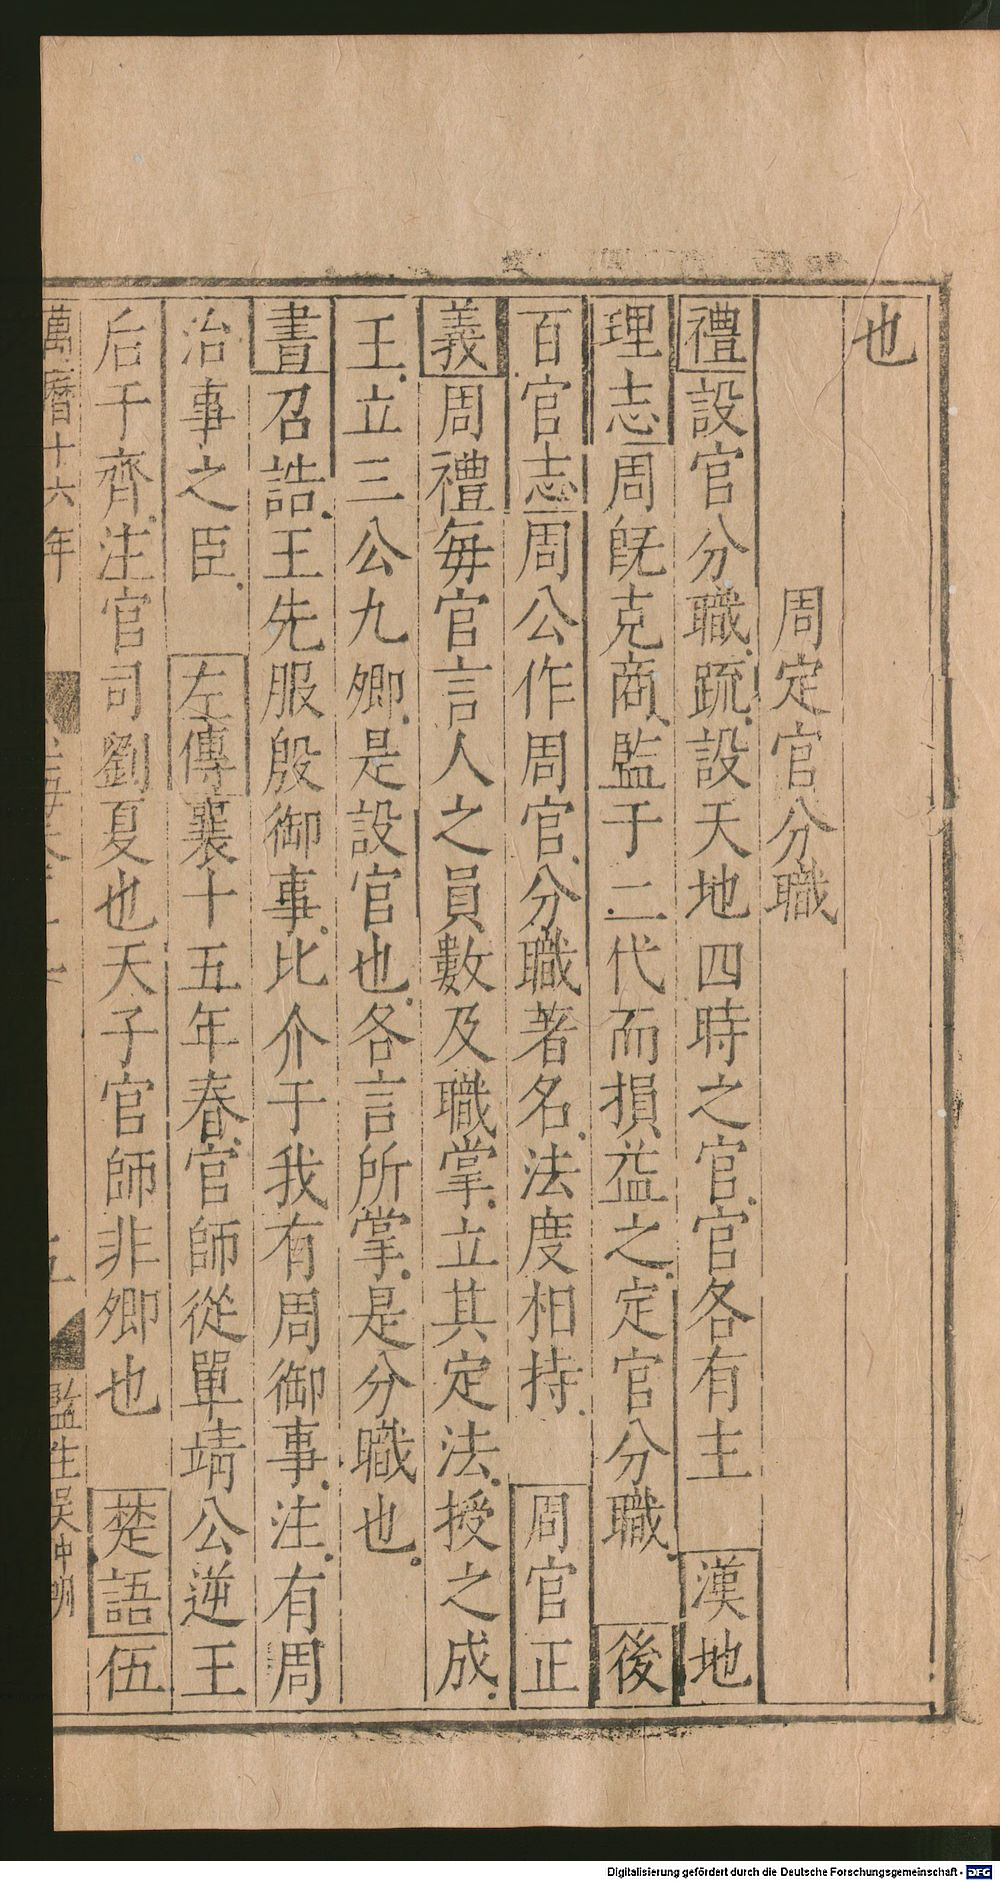 也
周定官分職
禮設官分職疏設天地四時之官官各有主 漢地
理志周旣克商監于二代而損益之定官分職 後
百官志周公作周官分職著名法度相持 周官正
義周禮每官言人之員數及職掌立其定法授之成
王立三公九卿是設官也各言所掌是分職也
書召誥王先服殷御事比介于我有周御事注有周
治事之臣 左傳襄十五年春官師從單靖公逆王
后于齊注官司劉夏也天子官師非卿也 楚語伍
萬曆十六年
五
監生吳中明
Digitalisierung gefördert durch die Deutsche Forschungsgemeinschaft - DFG